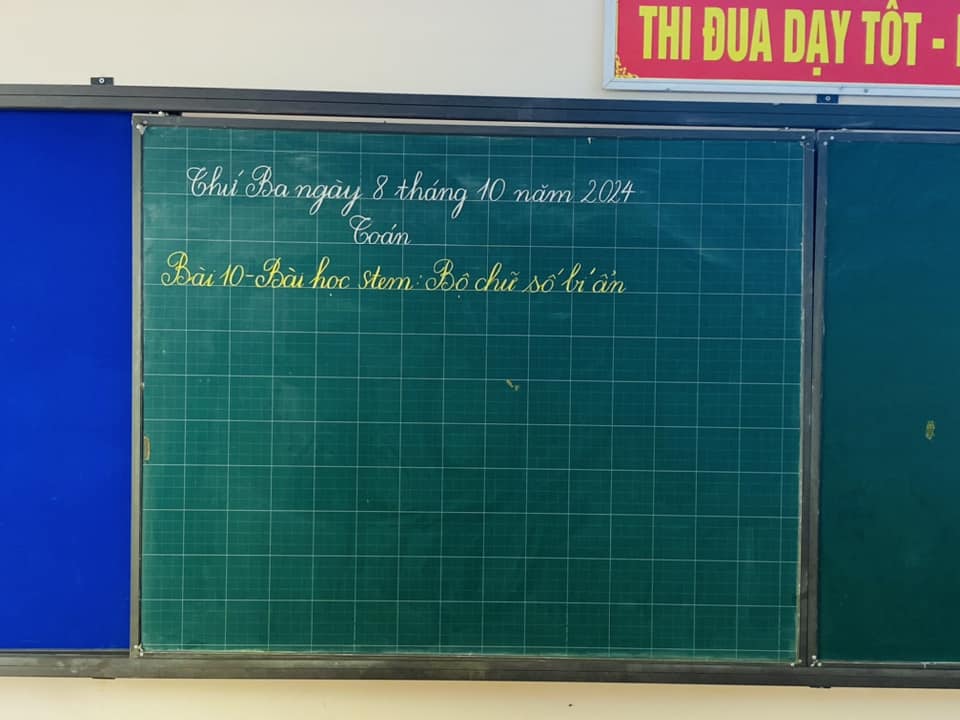 THI ĐUA DẠY TỐT -
Thứ Ba ngày 8 tháng 10 năm 2024
Toán
Bài 10 - Bài học stem: Bộ chữ số bí ẩn